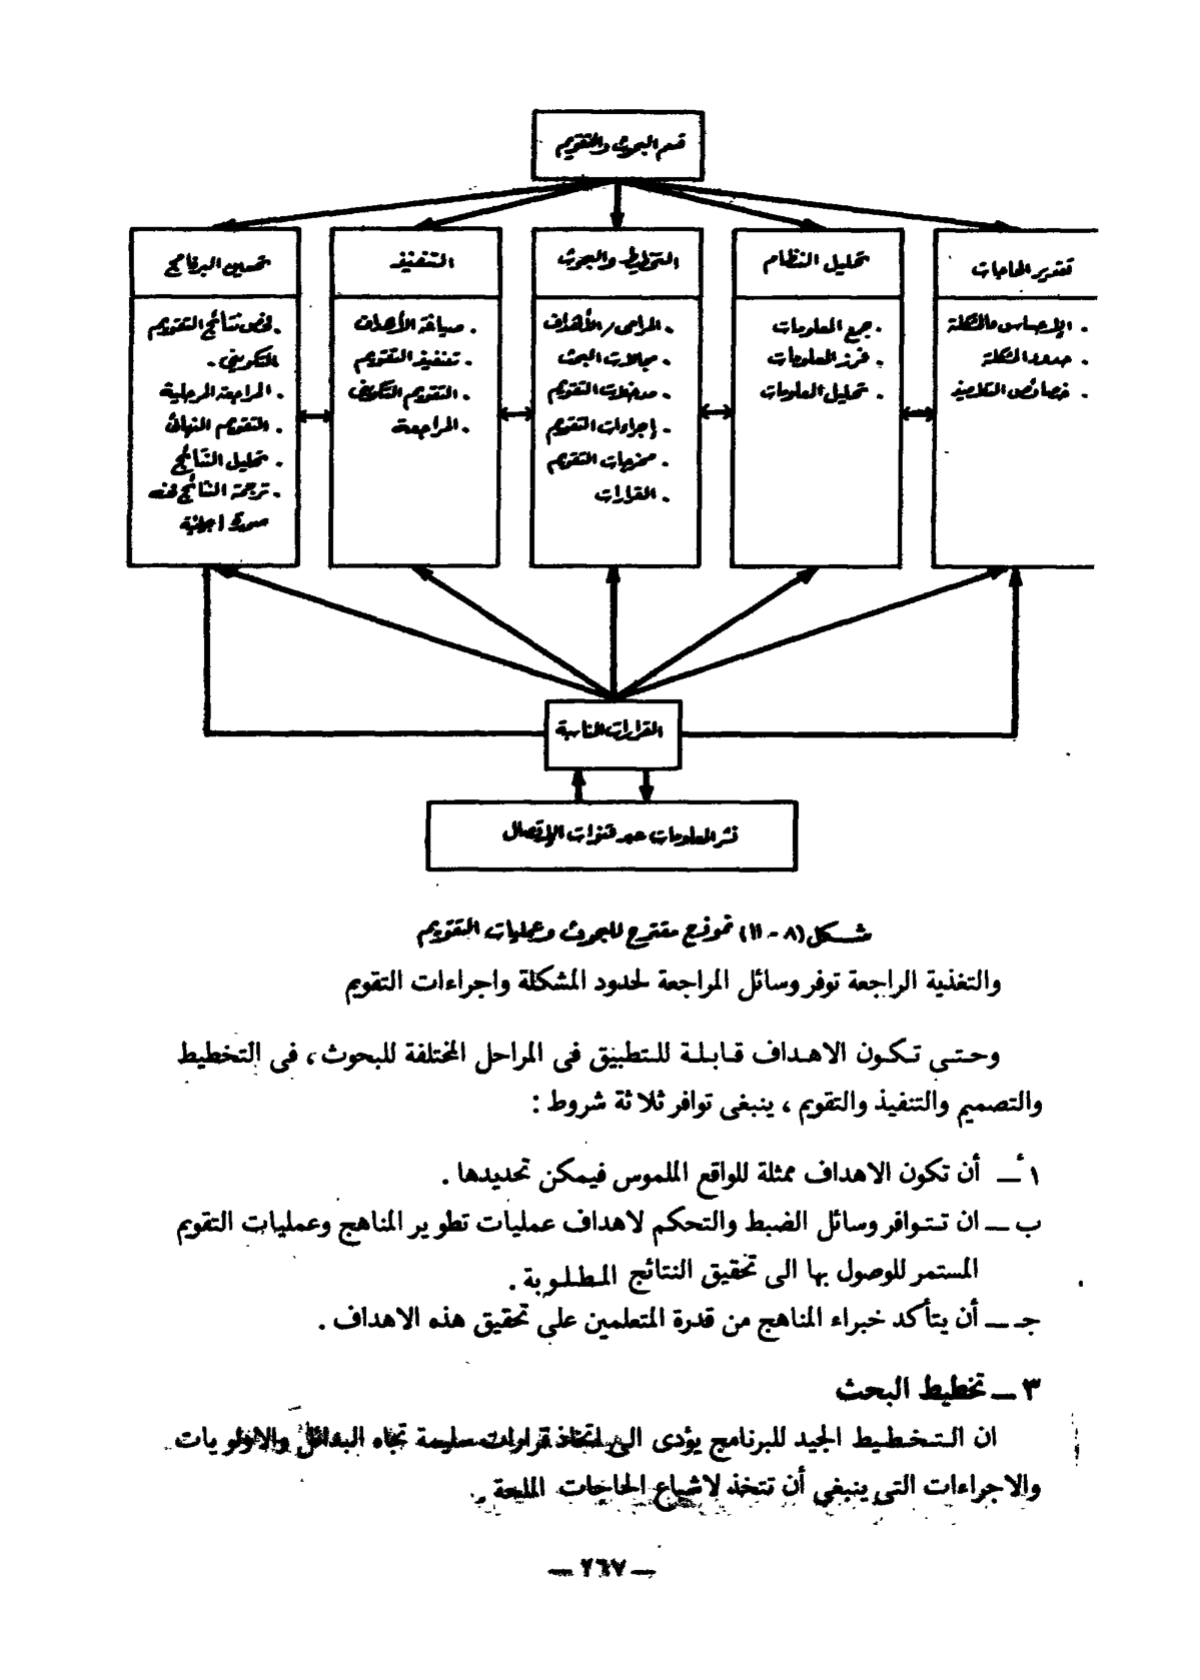 قسم البحوث والتقويم
تقدير الحاجات
. الإحساس بالمشكلة
. حدود المشكلة
. خصائص التلاميذ
تحليل النظام
. جمع المعلومات
. فرز المعلومات
. تحليل المعلومات
التخطيط والبحوث
. المرامى / الأهداف
. مجالات البحث
. مدخلات التقويم
. إجراءات التقويم
. مخرجات التقويم
. القرارات
التنفيذ
. صياغة الأهداف
. تنفيذ التقويم
. التقويم التكوينى
. المراجعة
تحسين البرنامج
. فحص نتائج التقويم
التكوينى .
. المراجعة المرحلية
. التقويم النهائى
. تحليل النتائج
. ترجمة النتائج فى
صورة اجرائية
القرارات المناسبة
نشر المعلومات عبر قنوات الإتصال
شـكل (٨ - ١١) نموذج مقترح للبحوث وعمليات التقويم
والتغذية الراجعة توفر وسائل المراجعة لحدود المشكلة واجراءات التقويم
وحتى تكون الاهداف قابلة للتطبيق فى المراحل المختلفة للبحوث ، فى التخطيط
والتصميم والتنفيذ والتقويم ، ينبغى توافر ثلاثة شروط :
١أ ــ أن تكون الاهداف ممثلة للواقع الملموس فيمكن تحديدها .
ب ــ ان تتوافر وسائل الضبط والتحكم لاهداف عمليات تطوير المناهج وعمليات التقويم
المستمر للوصول بها الى تحقيق النتائج المطلوبة .
جـ ــ أن يتأكد خبراء المناهج من قدرة المتعلمين على تحقيق هذه الاهداف .
٣ ــ تخطيط البحث
ان التخطيط الجيد للبرنامج يؤدى الى اتخاذ قرارات سليمة تجاه البدائل والاولويات
والاجراءات التى ينبغي أن تتخذ لاشباع الحاجات الملحة .
— ٢٦٧ —